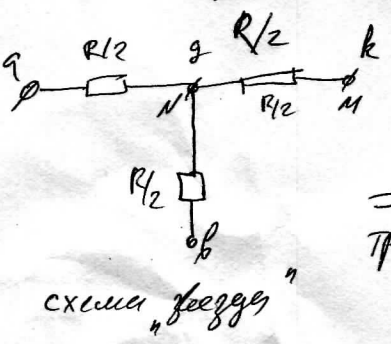 R/2 g R/2 k
a
N R/2 M
R/2
b
схема „звезда"